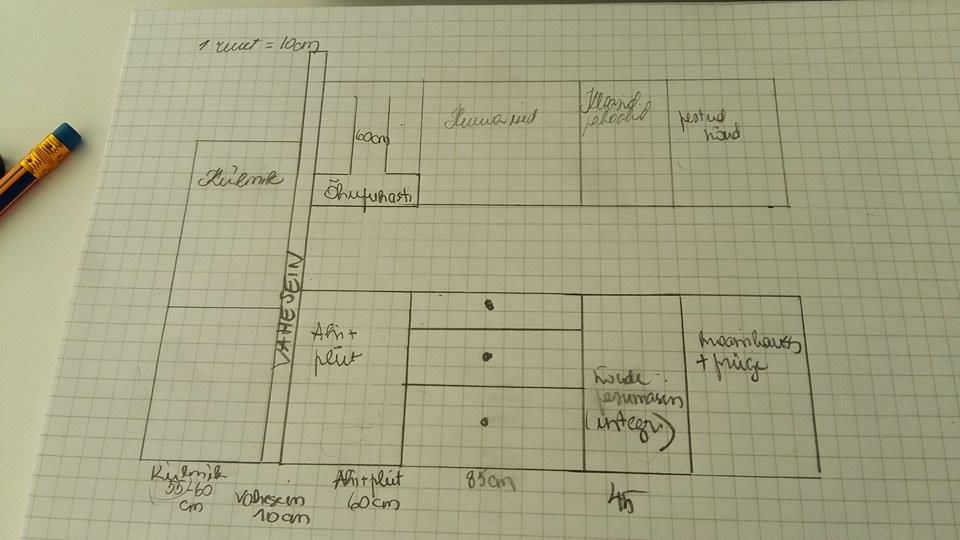 1 ruut = 10cm
Külmik
60cm
Õhupuhasti
Kuivained
pestud
nõud
VAHESEIN
Ahi+
pliit
Nõude-
pesumasin
(integr.)
+ prügi
Külmik
55-60
cm
Vahesein
10cm
Ahi+pliit
60cm
85cm
45